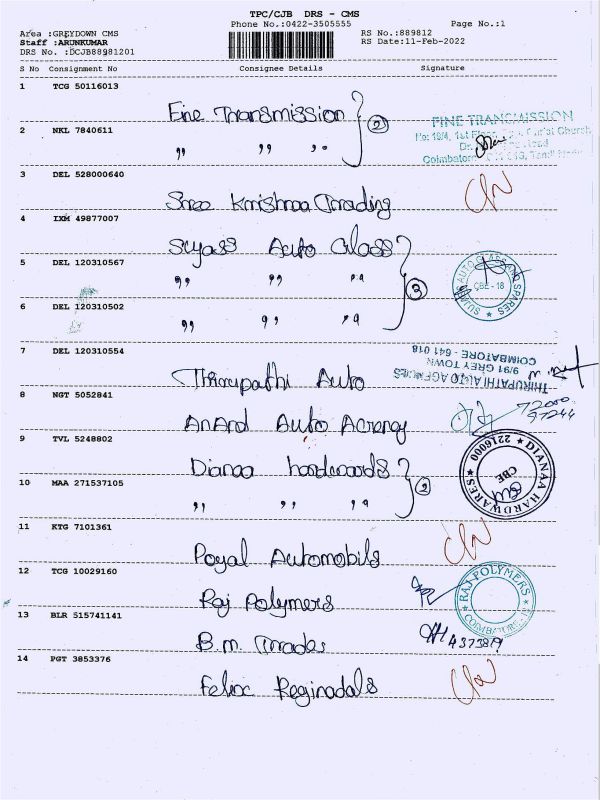 TPC/CJB DRS - CMS
Phone No.:0422-3505555
Page No.:1
Area :GREYDOWN CMS
RS No.:889812
Staff :ARUNKUMAR
RS Date:11-Feb-2022
DRS No. :DCJB88981201
S No Consignment No Consignee Details Signature
1 TCG 50116013
Fine Transmission
2
FINE TRANSMISSION
2 NKL 7840611
" " "
Coimbatore
3 DEL 528000640
Shree Krrishnaa Trading
4 IXM 49877007
Sujass Auto Glass
3
5 DEL 120310567
" " "
CBE - 18
6 DEL 120310502
" " "
7 DEL 120310554
Thirupathi Auto
THIRUPATHI AUTO AGENCIES
9/91 GREY TOWN
COIMBATORE - 641 018
8 NGT 5052841
Anand Auto Agency
72000
97244
9 TVL 5248802
Dianaa hardwards
2
DIANAA HARDWARES
2216000
CBE
10 MAA 271537105
" " "
11 KTG 7101361
Royal Automobils
12 TCG 10029160
Raj Polymers
RAJ POLYMERS
13 BLR 515741141
B.M. Trades
14 PGT 3853376
Felix Reginadals